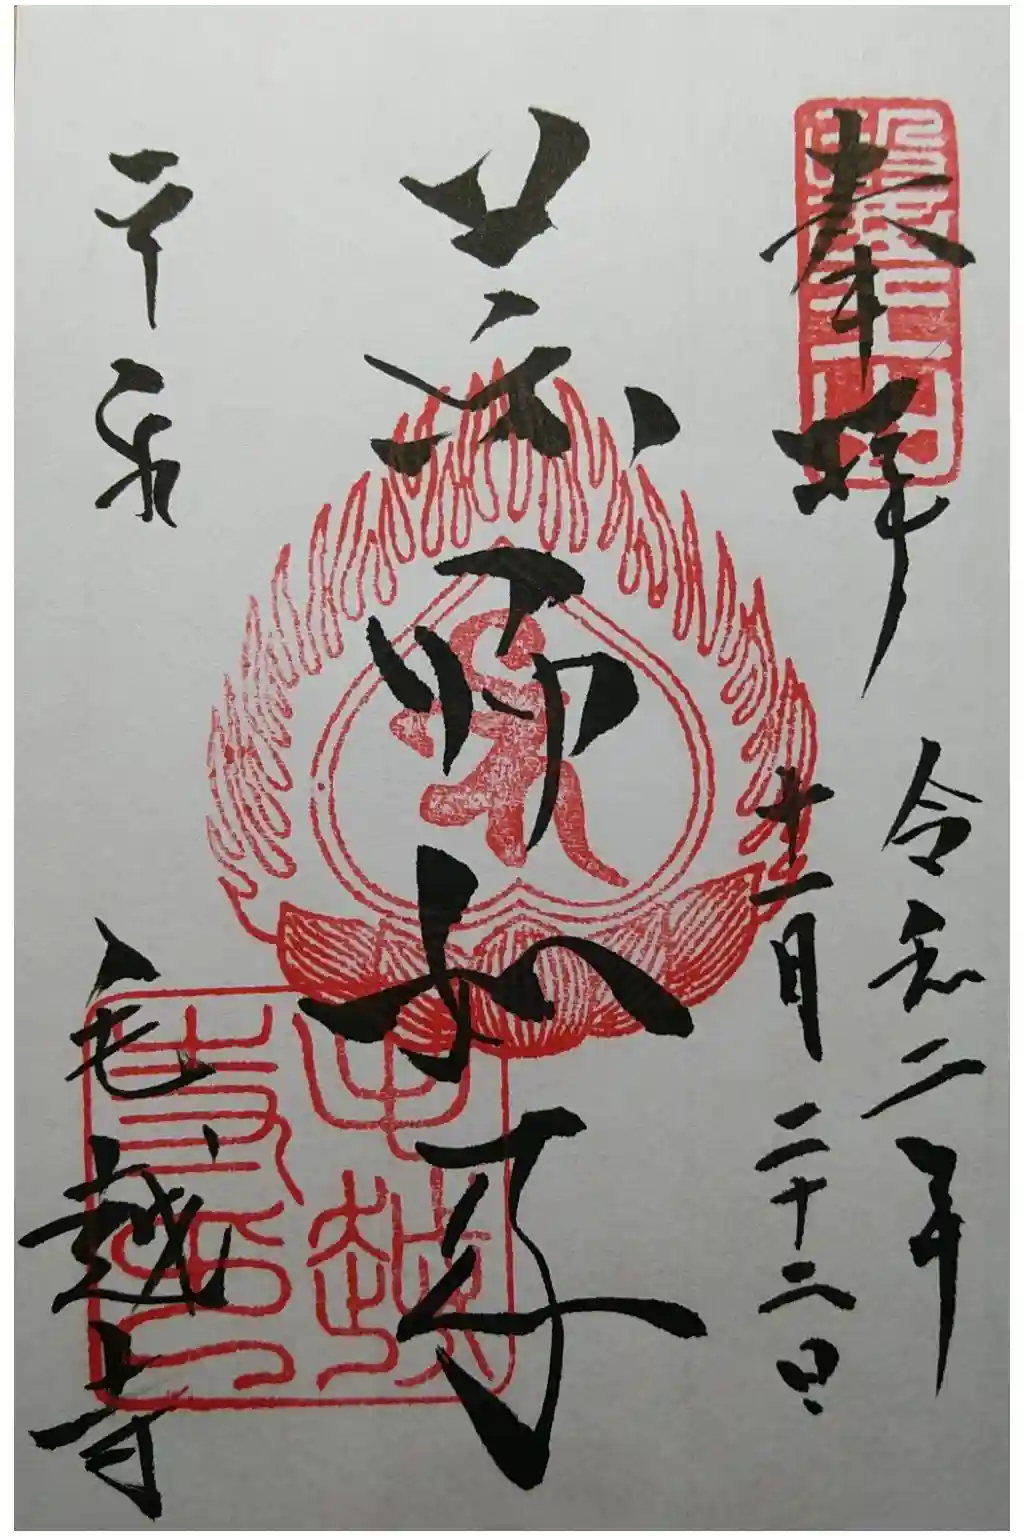 奉拝
令和二年
十一月二十二日
薬師如来
平泉
毛越寺
醫王山
毛越寺印